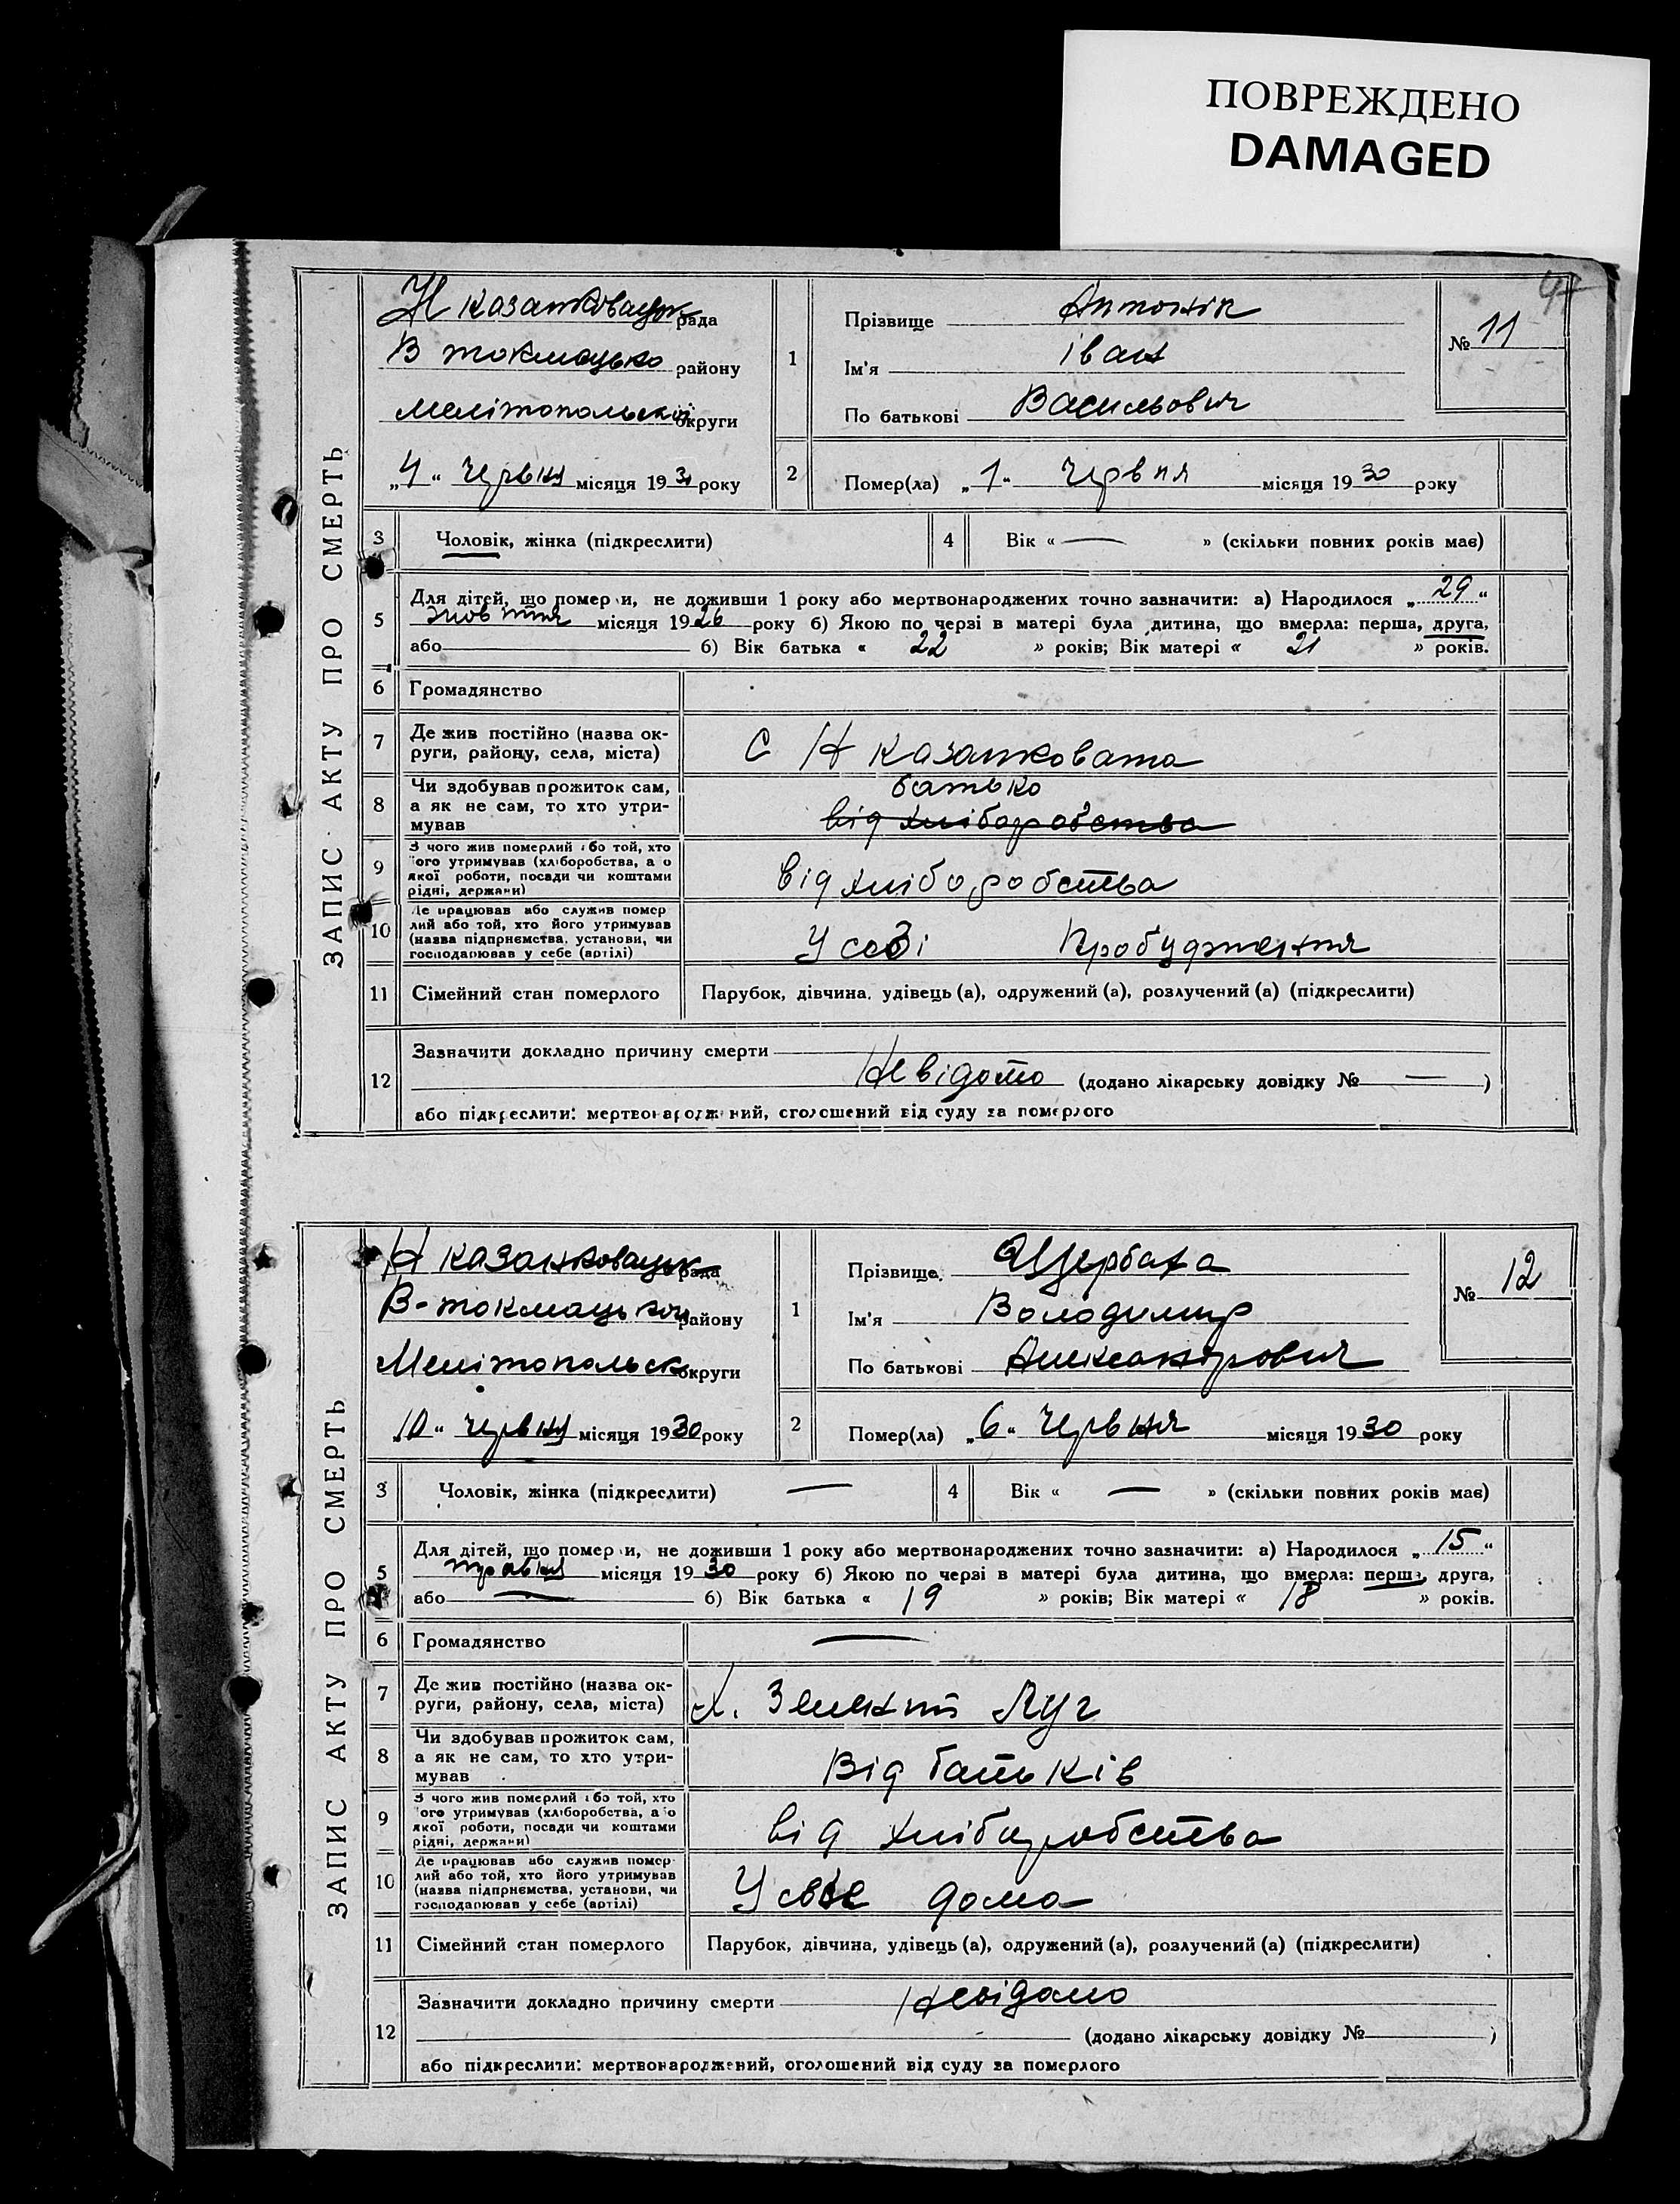 ПОВРЕЖДЕНО
DAMAGED
ЗАПИС АКТУ ПРО СМЕРТЬ
Н казанковацьк рада
В токмацько району
мелітопольської округи
„4“ червня місяця 1930 року
1
Прізвище Антонік
Ім'я іван
По батькові Васильович
№ 11
2
Помер(ла) „1“ червня місяця 1930 року
3 Чоловік, жінка (підкреслити)
4 Вік « — » (скільки повних років має)
5 Для дітей, що померли, не доживши 1 року або мертвонароджених точно зазначити: а) Народилося „29“
жовтня місяця 1926 року б) Якою по черзі в матері була дитина, що вмерла: перша, друга,
або б) Вік батька « 22 » років; Вік матері « 21 » років.
6 Громадянство
7 Де жив постійно (назва ок-
руги, району, села, міста) С Н казанковата
8 Чи здобував прожиток сам,
а як не сам, то хто утри-
мував
батько
від хліборобства
9 З чого жив померлий або той, хто
його утримував (хліборобства, або
якої роботи, посади чи коштами
рідні, держави)
від хліборобства
10 Де працював або служив помер
лий або той, хто його утримував
(назва підприємства, установи, чи
господарював у себе (артілі)
У собі Пробудження
11 Сімейний стан померлого Парубок, дівчина, удівець (а), одружений (а), розлучений (а) (підкреслити)
12 Зазначити докладно причину смерти
Невідомо (додано лікарську довідку № — )
або підкреслити: мертвонароджений, оголошений від суду за померлого
ЗАПИС АКТУ ПРО СМЕРТЬ
Н казанковацьк рада
В-токмацької району
Мелітопольсько округи
„10“ червня місяця 1930 року
1
Прізвище Щербана
Ім'я Володимир
По батькові Александрович
№ 12
2
Помер(ла) „6“ червня місяця 1930 року
3 Чоловік, жінка (підкреслити) —
4 Вік « — » (скільки повних років має)
5 Для дітей, що померли, не доживши 1 року або мертвонароджених точно зазначити: а) Народилося „15“
травня місяця 1930 року б) Якою по черзі в матері була дитина, що вмерла: перша, друга,
або — б) Вік батька « 19 » років; Вік матері « 18 » років.
6 Громадянство —
7 Де жив постійно (назва ок-
руги, району, села, міста) х. Зелений Луг
8 Чи здобував прожиток сам,
а як не сам, то хто утри-
мував
Від батьків
9 З чого жив померлий або той, хто
його утримував (хліборобства, або
якої роботи, посади чи коштами
рідні, держави)
від хліборобства
10 Де працював або служив помер-
лий або той, хто його утримував
(назва підприємства, установи, чи
господарював у себе (артілі)
У себе дома
11 Сімейний стан померлого Парубок, дівчина, удівець (а), одружений (а), розлучений (а) (підкреслити)
12 Зазначити докладно причину смерти Невідомо
(додано лікарську довідку № )
або підкреслити: мертвонароджений, оголошений від суду за померлого